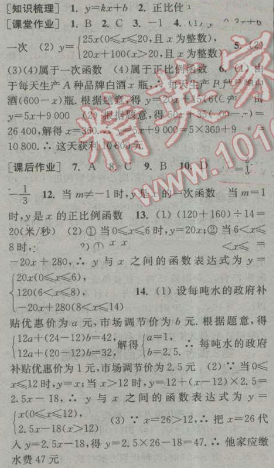 [知识梳理] 1. y=kx+b 2. 正比例
[课堂作业] 1. B 2. C 3. -1 4.
一次 (2) y={25x(0≤x≤20,且x为整数), 20x+100(x>20,且x为整数) 5. (2)
(3)(4)属于一次函数 (4)属于正比例函数 6.
于每天生产A种品牌白酒x瓶,
酒(600-x)瓶.根据题意,得
y=5x+9000 (2) 根据题意,得
26400,解得x=360 y=5×360+9
10800.∴ 这天获利10800元
[课后作业] 7. A 8. C 9. B 10. D
-1/3 12. 当m≠-1时,y是x的一次函数 当m=1
时,y是x的正比例函数 13. (1) (120+160)÷14=
20(米/秒) (2) ① 当0≤x≤6时,y=20x;② 当6<x≤
8时, <x≤
-20x+280,∴ y与x之间的函数表达式为y=
{20x(0≤x≤6), 120(6<x≤8), -20x+280(8<x≤14) 14. (1) 设每吨水的政府补
贴优惠价为a元,市场调节价为b元.根据题意,得
{12a+(24-12)b=42, 12a+(20-12)b=32, 解得{a=1, b=2.5. ∴ 每吨水的政府
补贴优惠价为1元,市场调节价为2.5元 (2) ∵ 当0≤
x≤12时,y=x;当x>12时,y=12+(x-12)×2.5=
2.5x-18,∴ y与x之间的函数表达式为y=
{x(0≤x≤12), 2.5x-18(x>12) (3) ∵ x=26>12,∴ 把x=26代
入y=2.5x-18,得y=2.5×26-18=47.∴ 他家应缴
水费47元